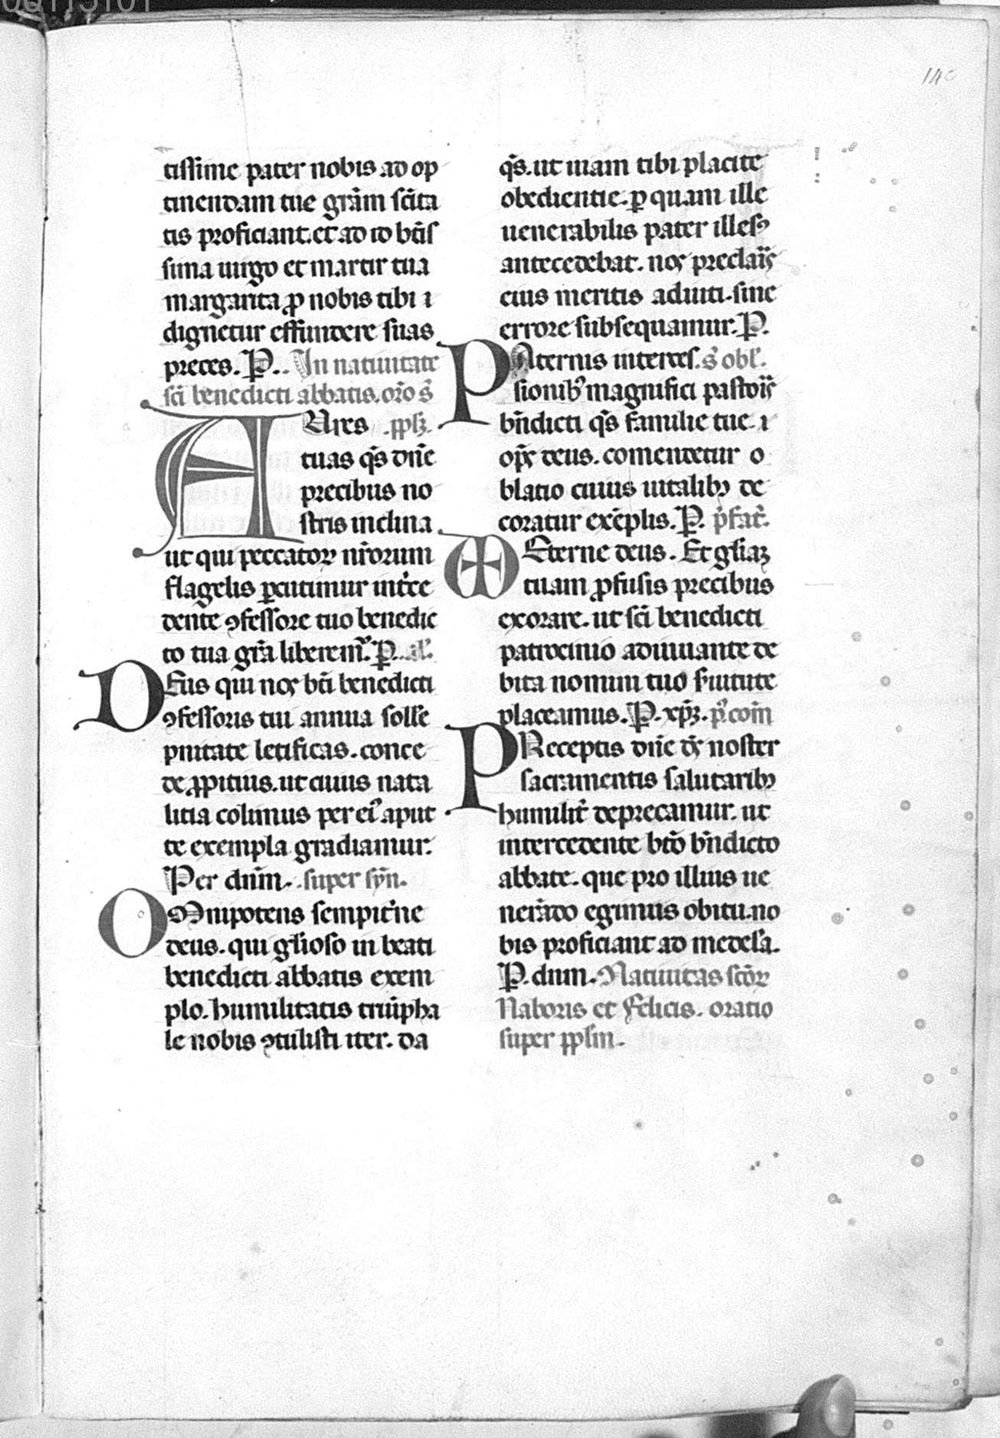 140
tissime pater nobis ad op
tinendam tue grām scīta
tis proficiant. et ad id btīs
sima uirgo et martir tua
margarita ꝓ nobis tibi ⁊
dignetur effundere suas
preces. P. In natiuitate
scī benedicti abbatis. orō s̄
AUres ppl̄z.
tuas qs̄ dn̄e
precibus no
stris inclina
ut qui peccatoꝝ nr̄orum
flagellis ꝑcutimur int̄ce
dente ꝯfessore tuo benedic
to tua grā liberem᷒. P. al.
DEus qui nos btī benedicti
ꝯfessoris tui annua solle
pnitate letificas. conce
de ꝓpitius. ut cuius nata
litia colimus per ei᷒ aput
te exempla gradiamur.
Per dnm. super syn.
OMnipotens sempit̄ne
deus. qui gl̄ioso in beati
benedicti abbatis exem
plo. humilitatis triūpha
le nobis ꝯtulisti iter. da
qs̄. ut uiam tibi placite
obedientie. ꝑ quam ille
uenerabilis pater illesꝰ
antecedebat. nos preclaris
eius meritis adiuti. sine
errore subsequamur. P.
PAternis interces. s̄ obl.
sionibꝰ magnifici pastoris
bn̄dicti qs̄ familie tue. ⁊
opīs deus. comendetur o
blatio cuius uitalibꝫ de
coratur exēplis. P. p̄fat̄.
Eterne deus. Et gl̄iaꝫ
tuam ꝓfusis precibus
exorare. ut scī benedicti
patrocinio adiuuante de
bita nomini tuo s̄uitute
placeamus. P. xp̄ꝫ. p᷒ com̄
PReceptis dn̄e ds̄ noster
sacramentis salutaribꝫ
humilit̄ deprecamur. ut
intercedente btō bn̄dicto
abbate. que pro illius ue
nerādo egimus obitu. no
bis proficiant ad medela.
P. dnm. Natiuitas scōꝝ
Naboris et Felicis. oratio
super pplm.